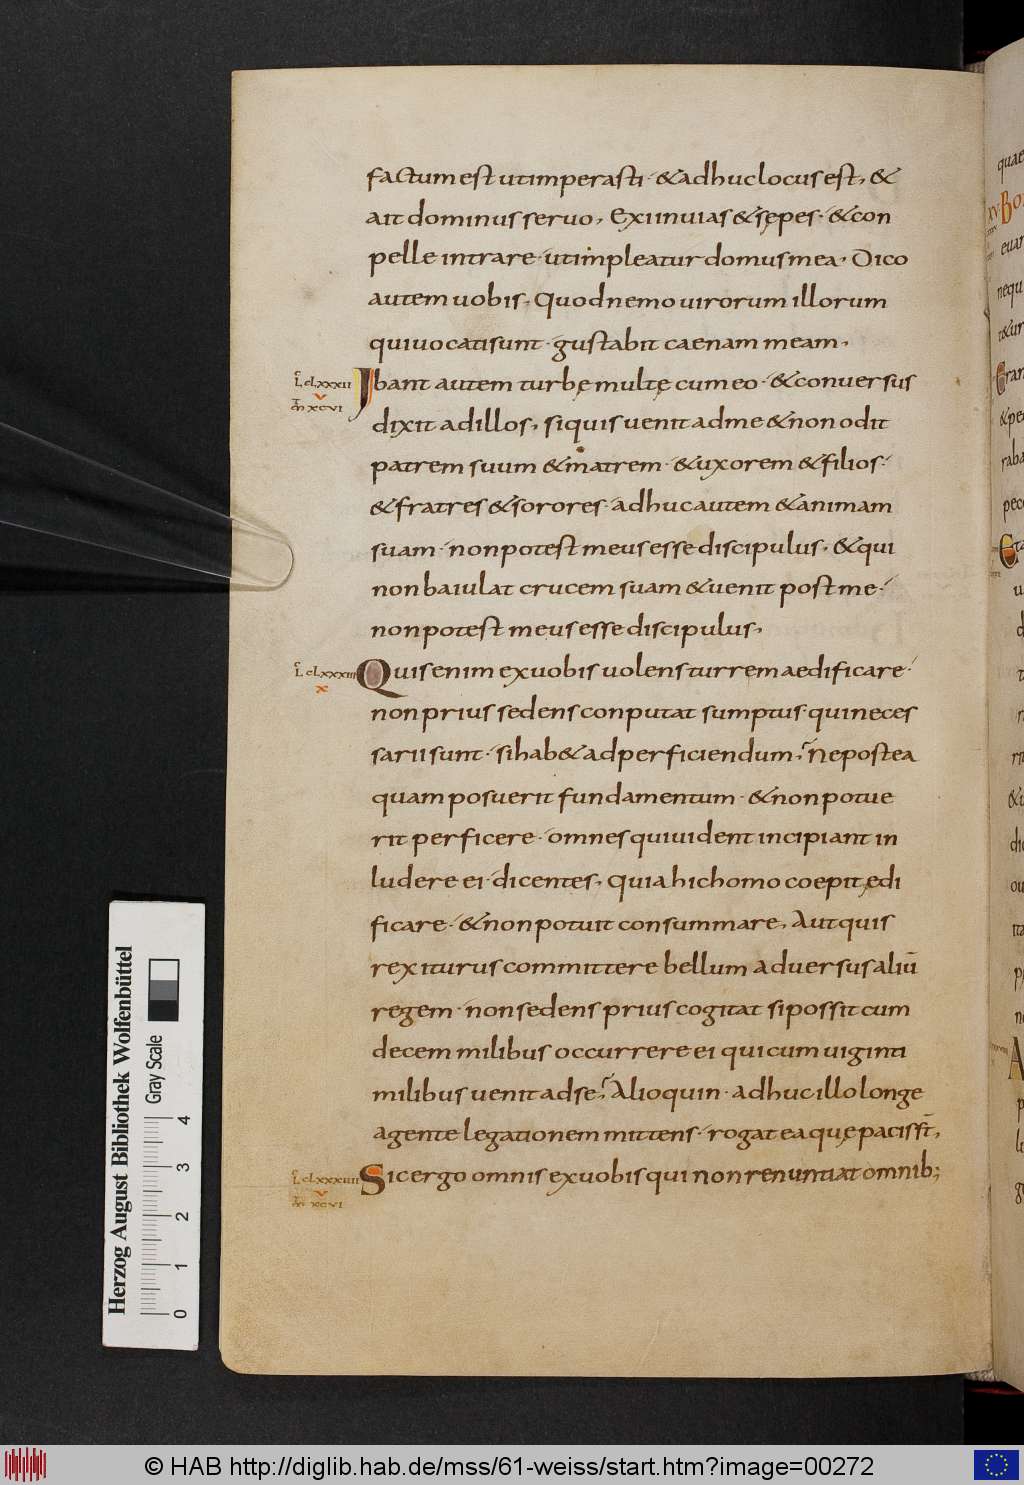 factum est ut imperasti · & adhuc locus est, &
ait dominus servo, Exi in uias & sępes · & con
pelle intrare · ut impleatur domus mea, Dico
autem uobis, Quod nemo uirorum illorum
qui uocati sunt · gustabit caenam meam,
L CLXXXII
M XCVI
Ibant autem turbę multę cum eo · & conuersus
dixit ad illos, si quis uenit ad me & non odit
patrem suum & matrem · & uxorem & filios ·
& fratres & sorores · adhuc autem & animam
suam · non potest meus esse discipulus, & qui
non baiulat crucem suam & uenit post me ·
non potest meus esse discipulus,
L CLXXXIII
X
Quis enim ex uobis uolens turrem aedificare ·
non prius sedens conputat sumptus qui neces
sarii sunt · si hab& ad perficiendum, Ne postea
quam posuerit fundamentum · & non potue
rit perficere · omnes qui uident incipiant in
ludere ei · dicentes, Quia hic homo coepit ędi
ficare · & non potuit consummare, Aut quis
rex iturus committere bellum aduersus aliū
regem · non sedens prius cogitat si possit cum
decem milibus occurrere ei qui cum uiginti
milibus uenit ad se, Alioquin · adhuc illo longe
agente legationem mittens · rogat ea quę pacis st̄,
L CLXXXIIII
M XCVI
Sic ergo omnis ex uobis qui non renuntiat omnib;
quae
XV
Bo
euan
nequ
Eran
& pe
raba
pecc
Herzog August Bibliothek Wolfenbüttel
Gray Scale
0 1 2 3 4
© HAB http://diglib.hab.de/mss/61-weiss/start.htm?image=00272